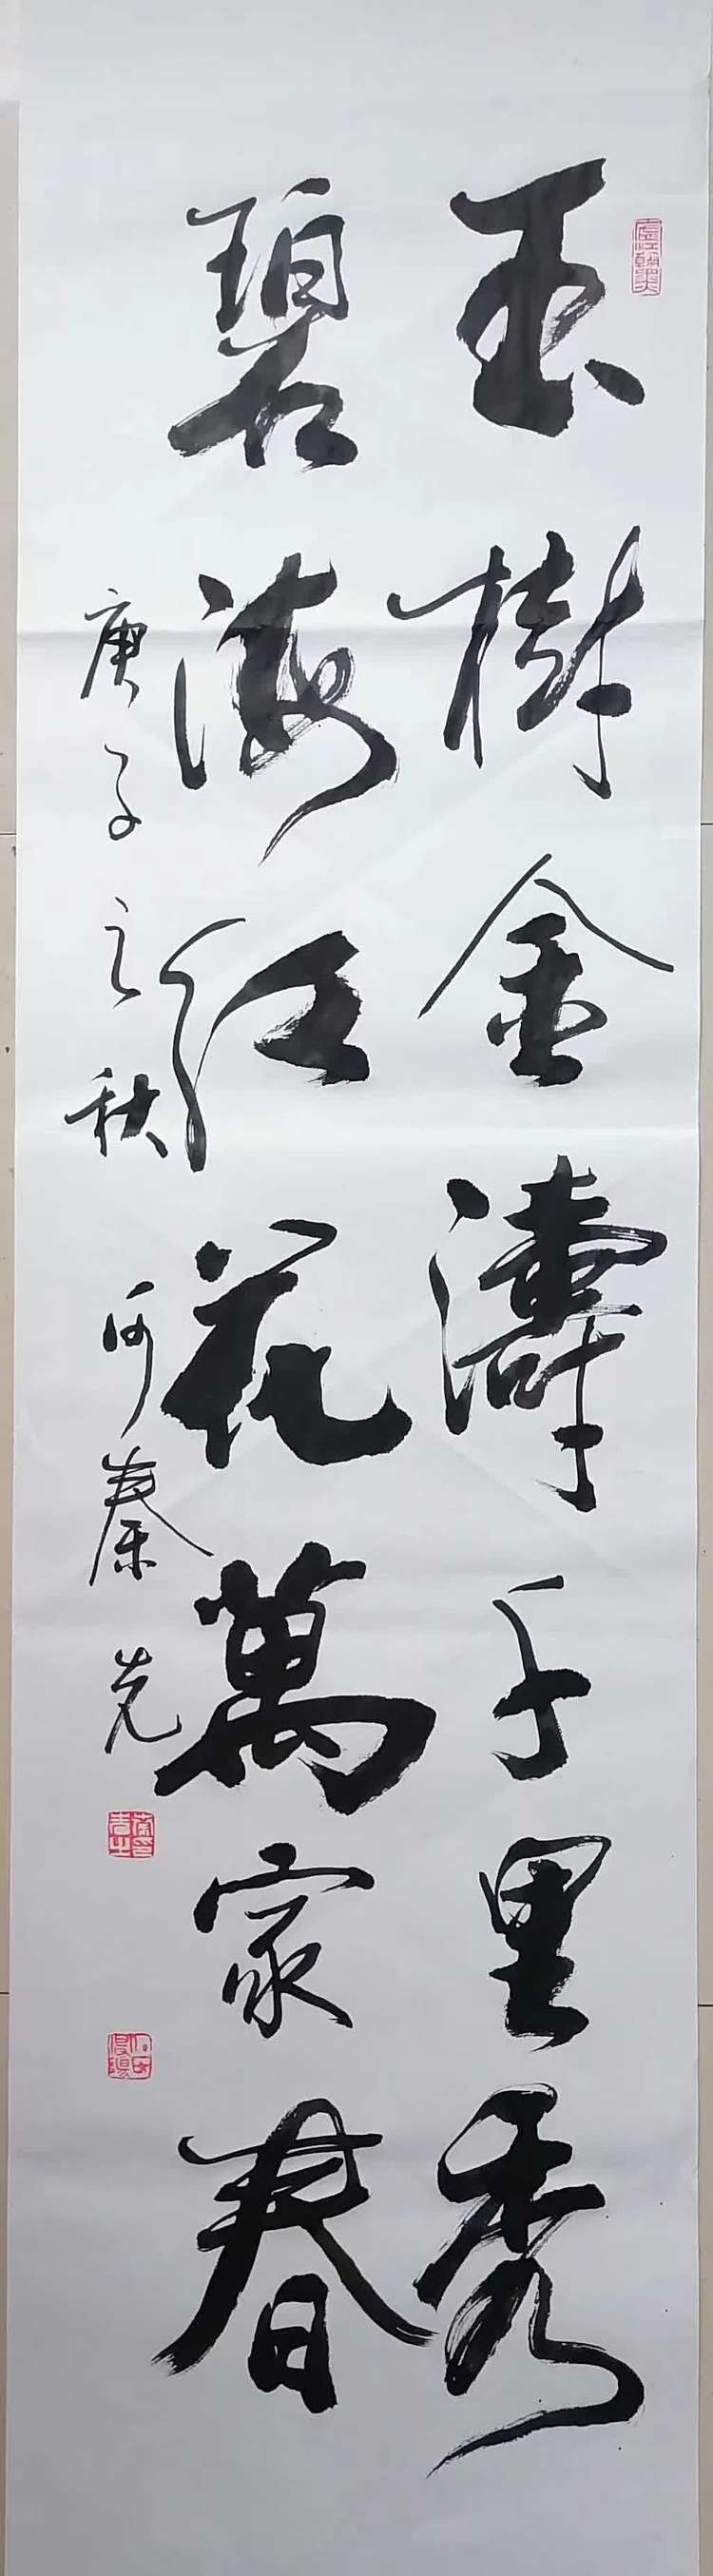 玉樹金濤千里秀
碧海红花萬家春
庚子之秋 何秦光